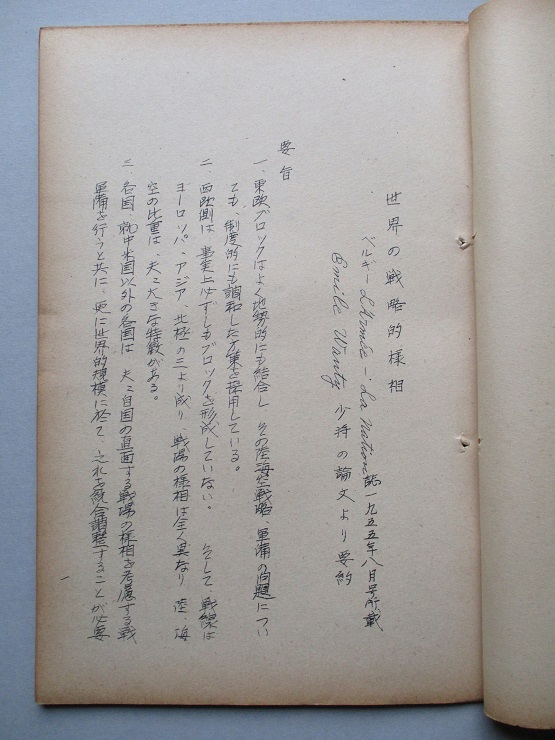 世界の戦略的様相
ベルギー L'Armée - La Nation 誌一九五五年八月号所載
Emile Wanty 少将の論文より要約
要旨
一、東欧ブロックはよく地勢的にも結合し その陸海空戦略、軍備の問題につい
ても、制度的にも調和した方策を採用している。
二、西欧側は 事実上必ずしもブロックを形成していない。 そして 戦線は
ヨーロッパ、アジア、北極の三より成り、戦場の様相は全く異なり 陸、海
空の比重は、夫々大きな特徴がある。
三 各国、就中米国以外の各国は 夫々自国の直面する戦場の様相を考慮する戦
軍備を行うと共に、更に世界的規模に於て、之れを統合調整することが必要